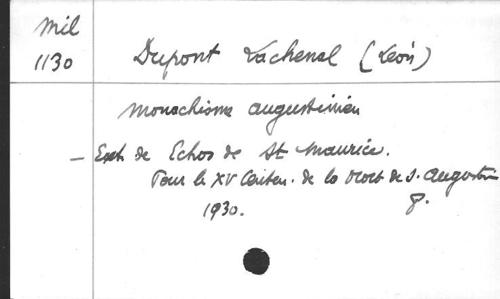 Mil
1130
Dupont Lachenal (Léon)
Monachisme augustinien
- Extr. de Echos de St Maurice.
Pour le XV Centen. de la Mort de S. Augustin
1930. 8.